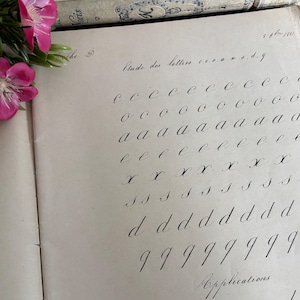 Etude des lettres c o a e x s d q
c c c c c c c c
o o o o o o o o
a a a a a a a a
e e e e e e e e
x x x x x x
s s s s s s s s
d d d d d d d
q q q q q q q q
Applications